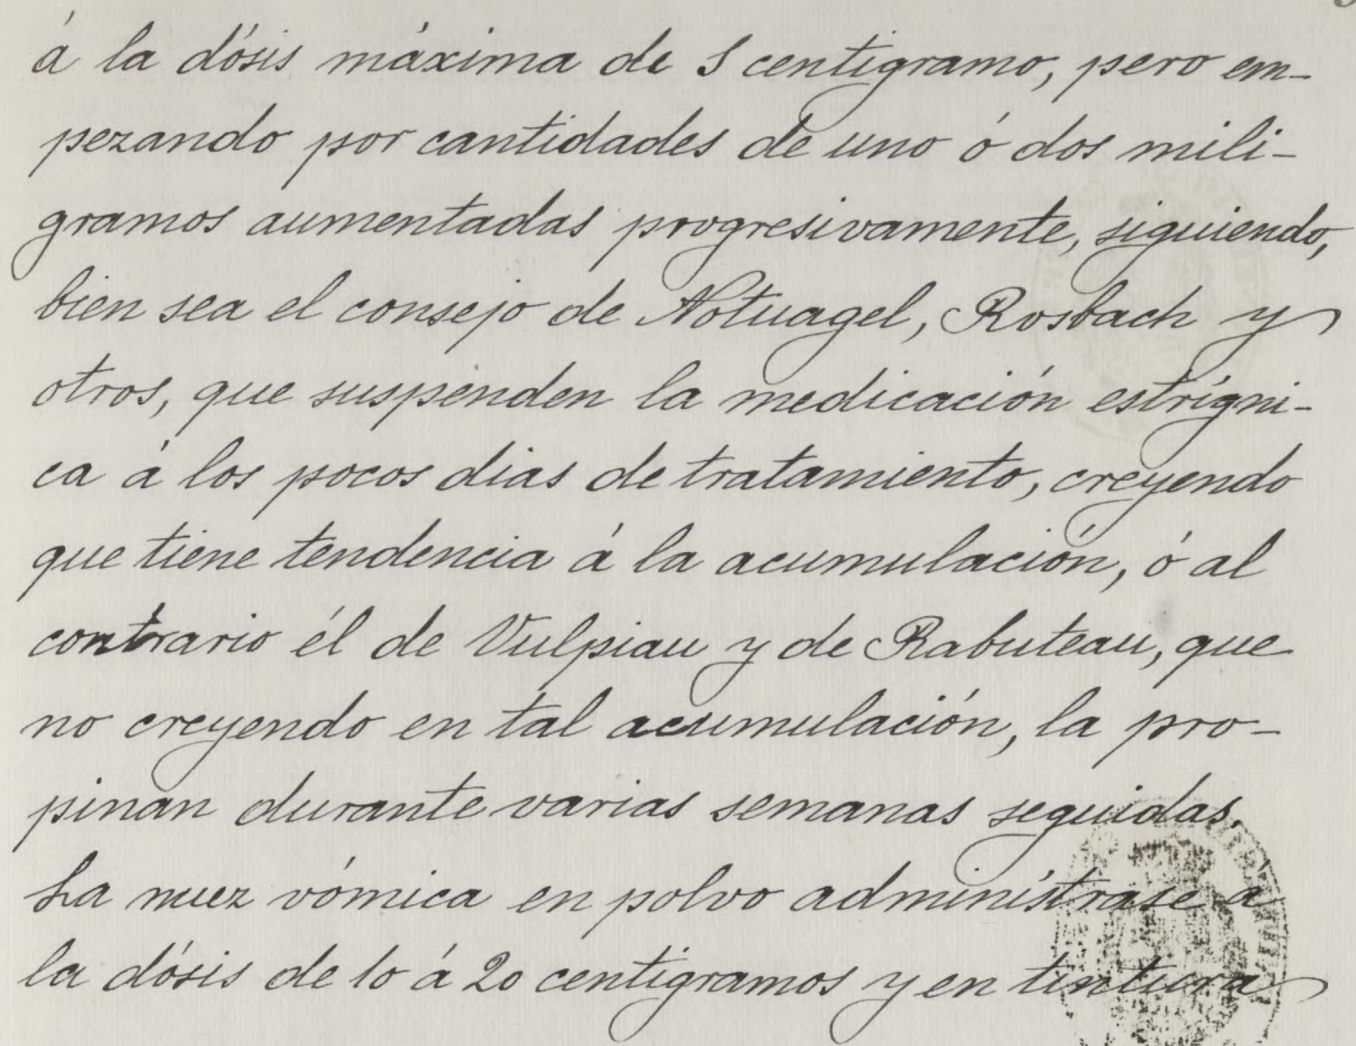 á la dósis máxima de 1 centígramo, pero em-
pezando por cantidades de uno ó dos mili-
gramos aumentadas progresivamente, siguiendo,
bien sea el consejo de Notuagel, Rosbach y
otros, que suspenden la medicación estrígni-
ca á los pocos dias de tratamiento, creyendo
que tiene tendencia á la acumulación, ó al
contrario él de Vulpiau y de Rabuteau, que
no creyendo en tal acumulación, la pro-
pinan durante varias semanas seguidas.
La nuez vómica en polvo adminístrase a
la dósis de 10 á 20 centígramos y en tintura